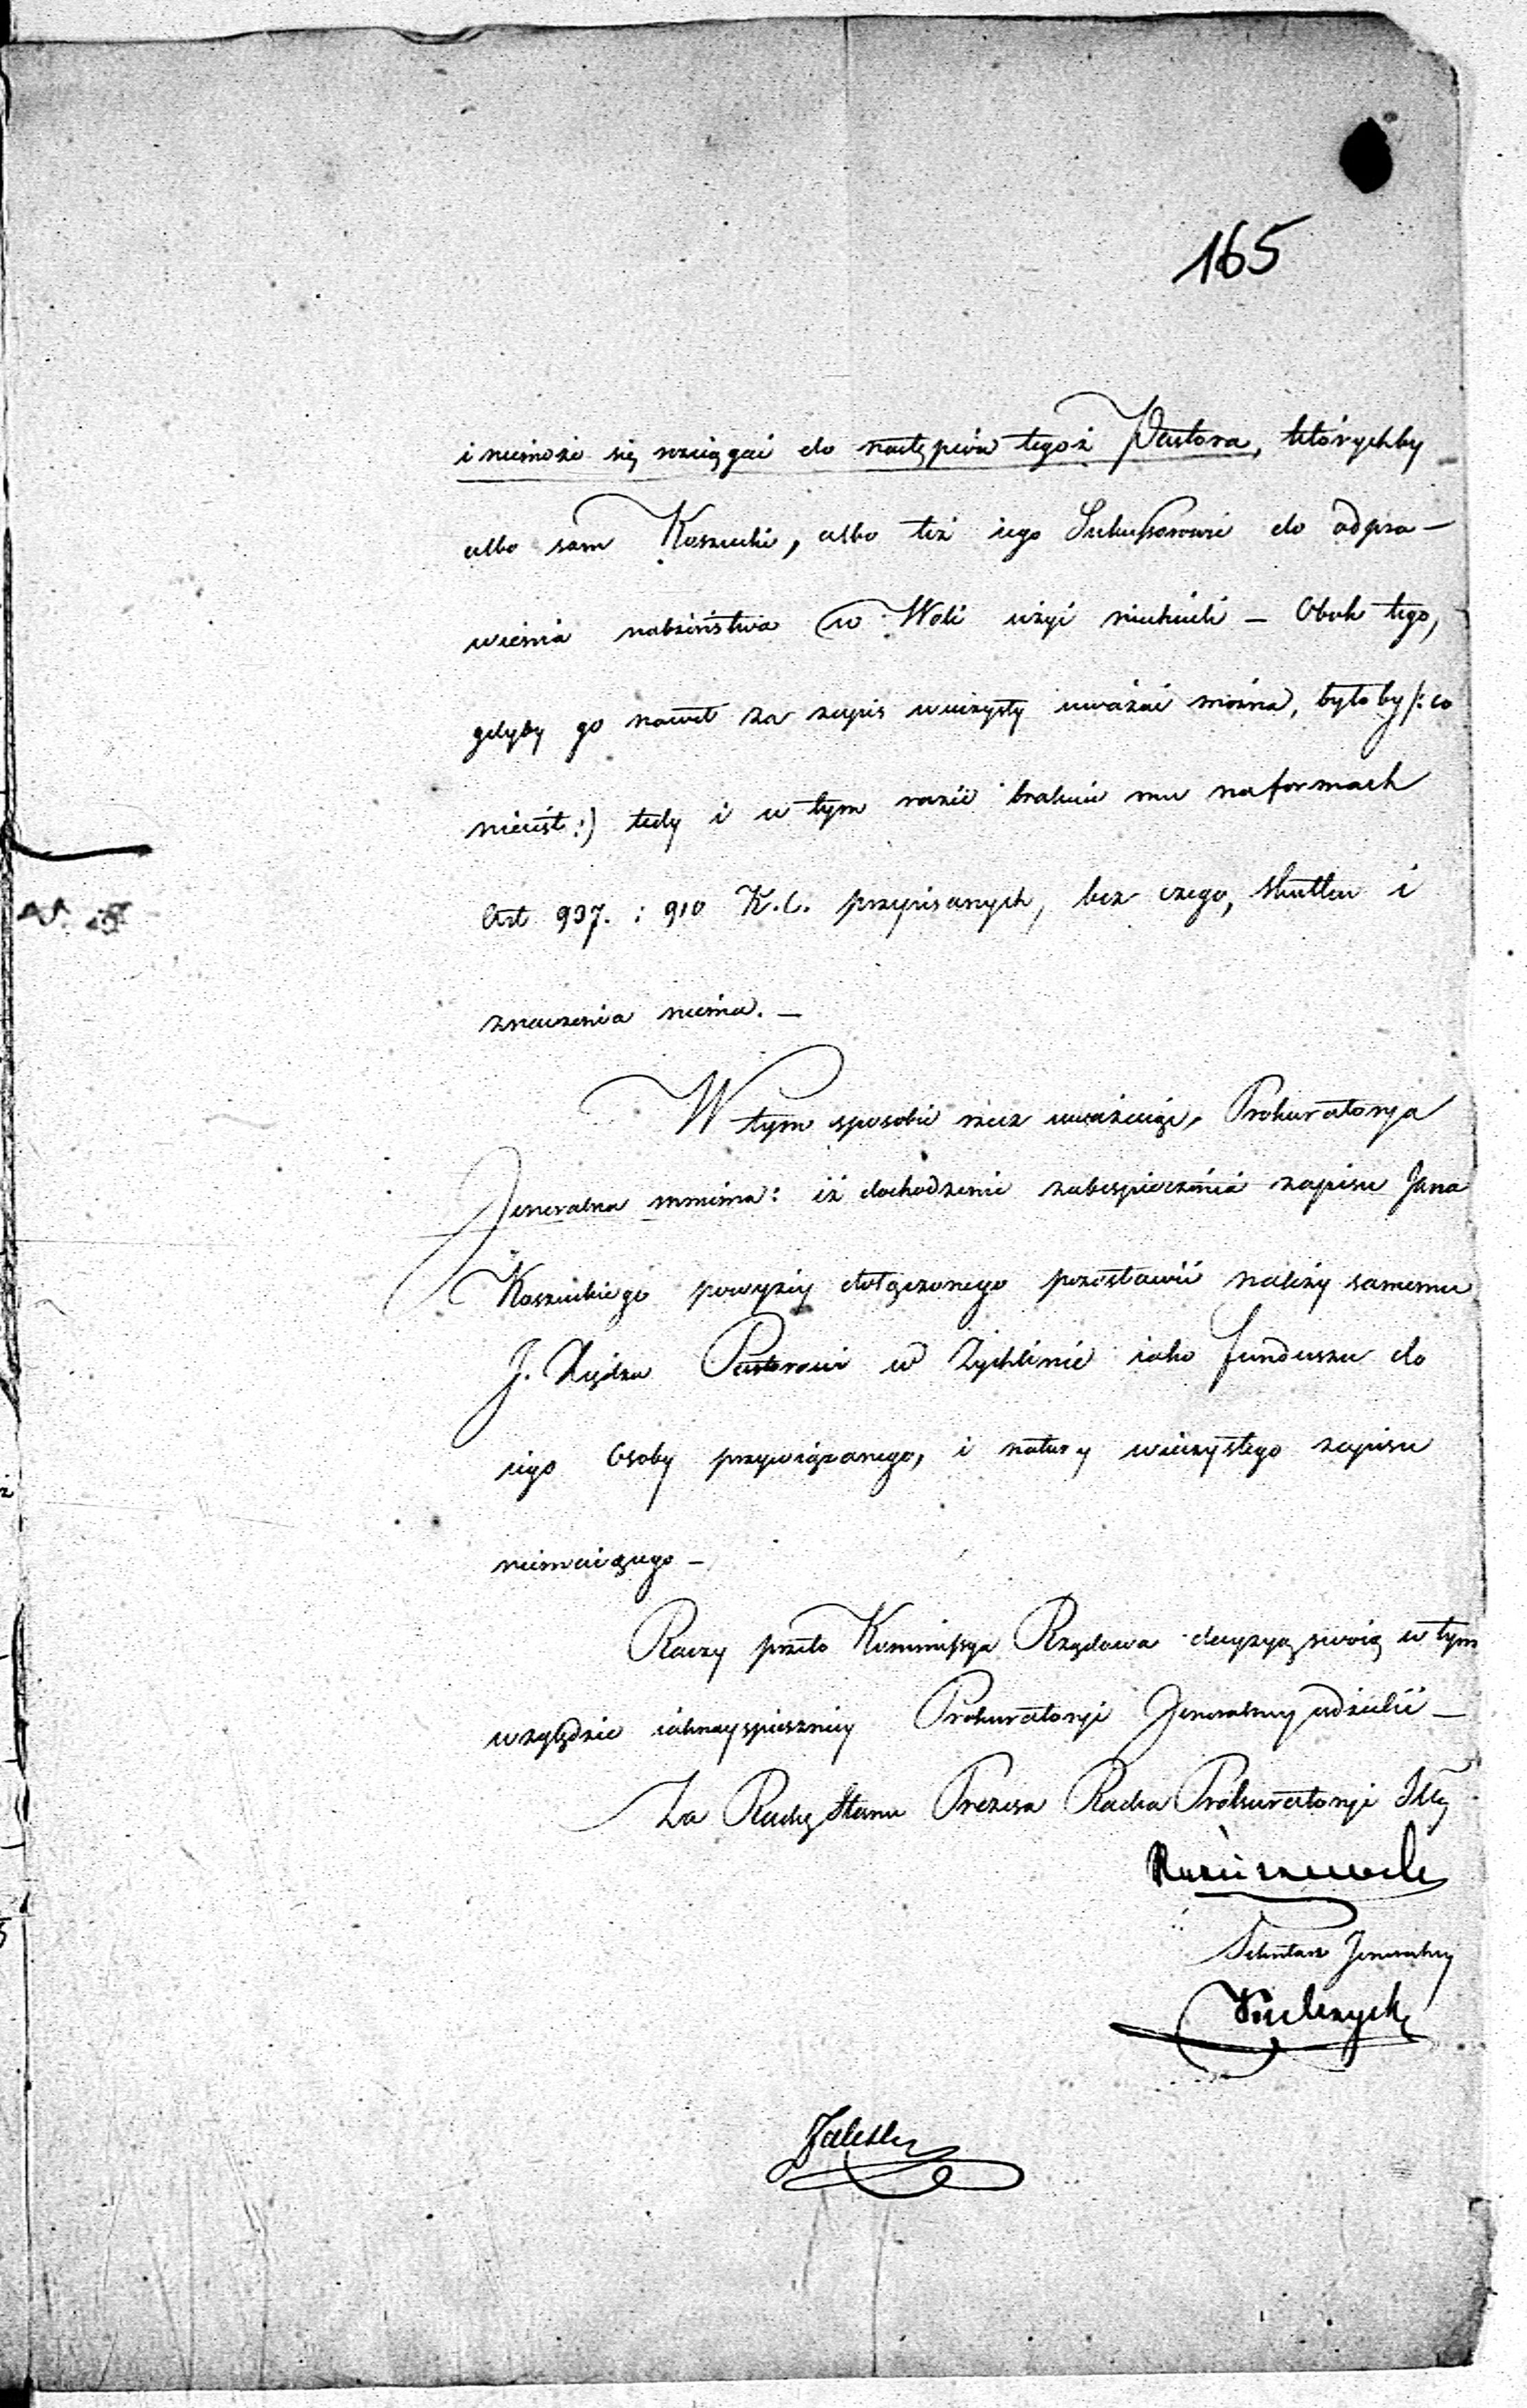 165
i niemoże się rozciągać do następców tegoż Pastora, którychby
albo sam Koszucki, albo też iego Sukcessorowie do odpra-
wienia nabżeństwa w Woli użyć niechcieli - Obok tego,
gdyby go nawet za zapis wieczysty uważać można, było by /: co
nieiest :) tedy i w tym razie brakuie mu na formach
Art 937. i 910 K. C. przepisanych, bez czego, skutku i
znaczenia niema. -
W tym sposobie rzecz uważaiąc, Prokuratorya
Jeneralna mniema: iż dochodzenie zabespieczenia zapisu Jana
Koszuckiego powyżey dołączonego pozostawić należy samemu
J. Xiędzu Pastorowi w Żychlinie iako funduszu do
iego Osoby przywiązanego, i natury wieczystego zapisu
niemaiącego -
Raczy przeto Kommissya Rządowa decyzyą swoią w tym
względzie iaknayspieszniey Prokuratoryi Jeneralney udzielić -
Za Radcę Stanu Prezesa Radca Prokuratoryi
Sekretarz Jeneralny